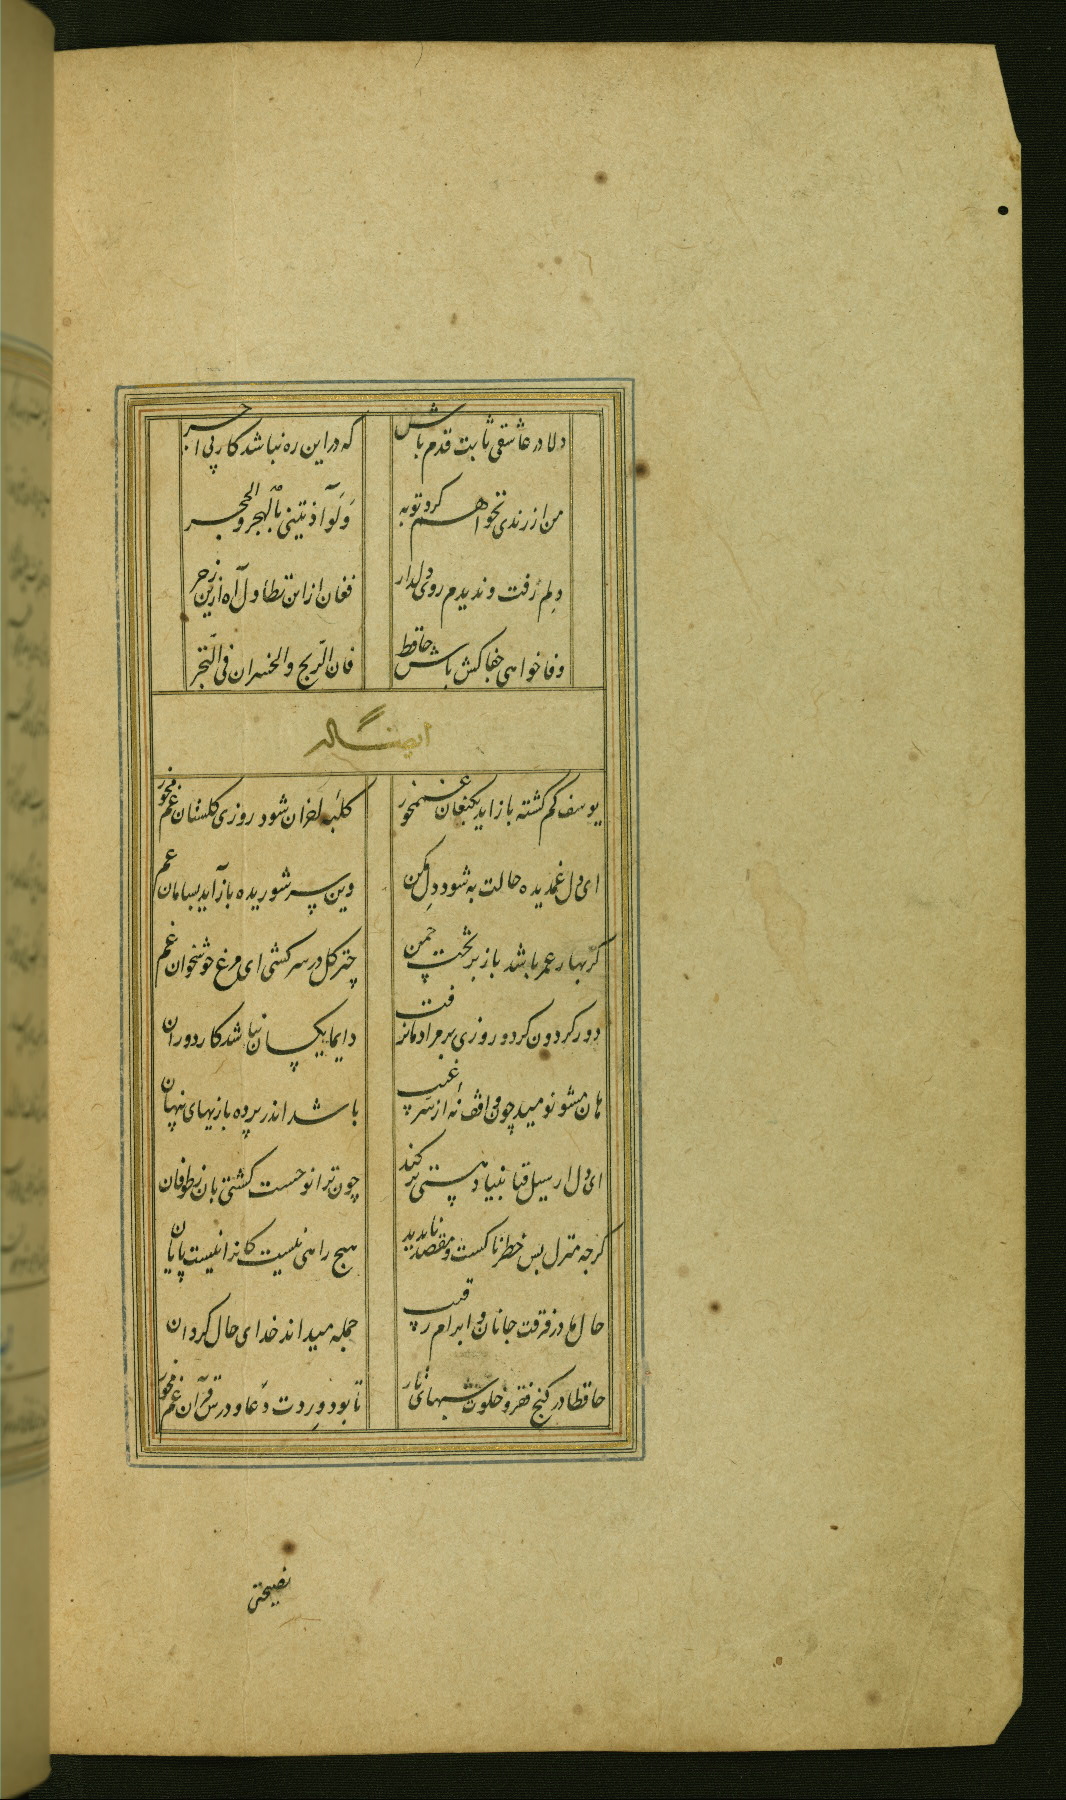 دلا در عاشقی ثابت قدم باش که در این ره نباشد کار بی اجر
من از رندی نخواهم کرد توبه وَلَو آذَیتنی بالهجر والحجر
دلم رفت و ندیدم روی دلدار فغان از این تطاول آه ازین زجر
وفا خواهی جفاکش باش حافظ فان الربح والخسران فی التجر
ایضاً له
یوسف گم گشته باز اید بکنعان غم مخور کلبه احزان شود روزی گلستان غم مخور
ای دل غمدیده حالت به شود دل بد مکن وین سر شوریده باز آید بسامان غم
گر بهار عمر باشد باز بر تخت چمن چتر گل در سر کشی ای مرغ خوشخوان غم
دور گردون گر دو روزی بر مراد ما نرفت دایما یکسان نباشد کار دوران
هان مشو نومید چون واقف نه از سر غیب باشد اندر پرده بازیهای پنهان
ای دل ار سیل فنا بنیاد هستی بر کند چون ترا نوحست کشتی بان ز طوفان
گرچه منزل بس خطرناکست و مقصد ناپدید هیچ راهی نیست کانرا نیست پایان
حال ما در فرقت جانان و ابرام رقیب جمله میداند خدای حال گردان
حافظا در کنج فقر و خلوت شبهای تار تا بود وردت دعا و درس قرآن غم مخور
نصیحتی